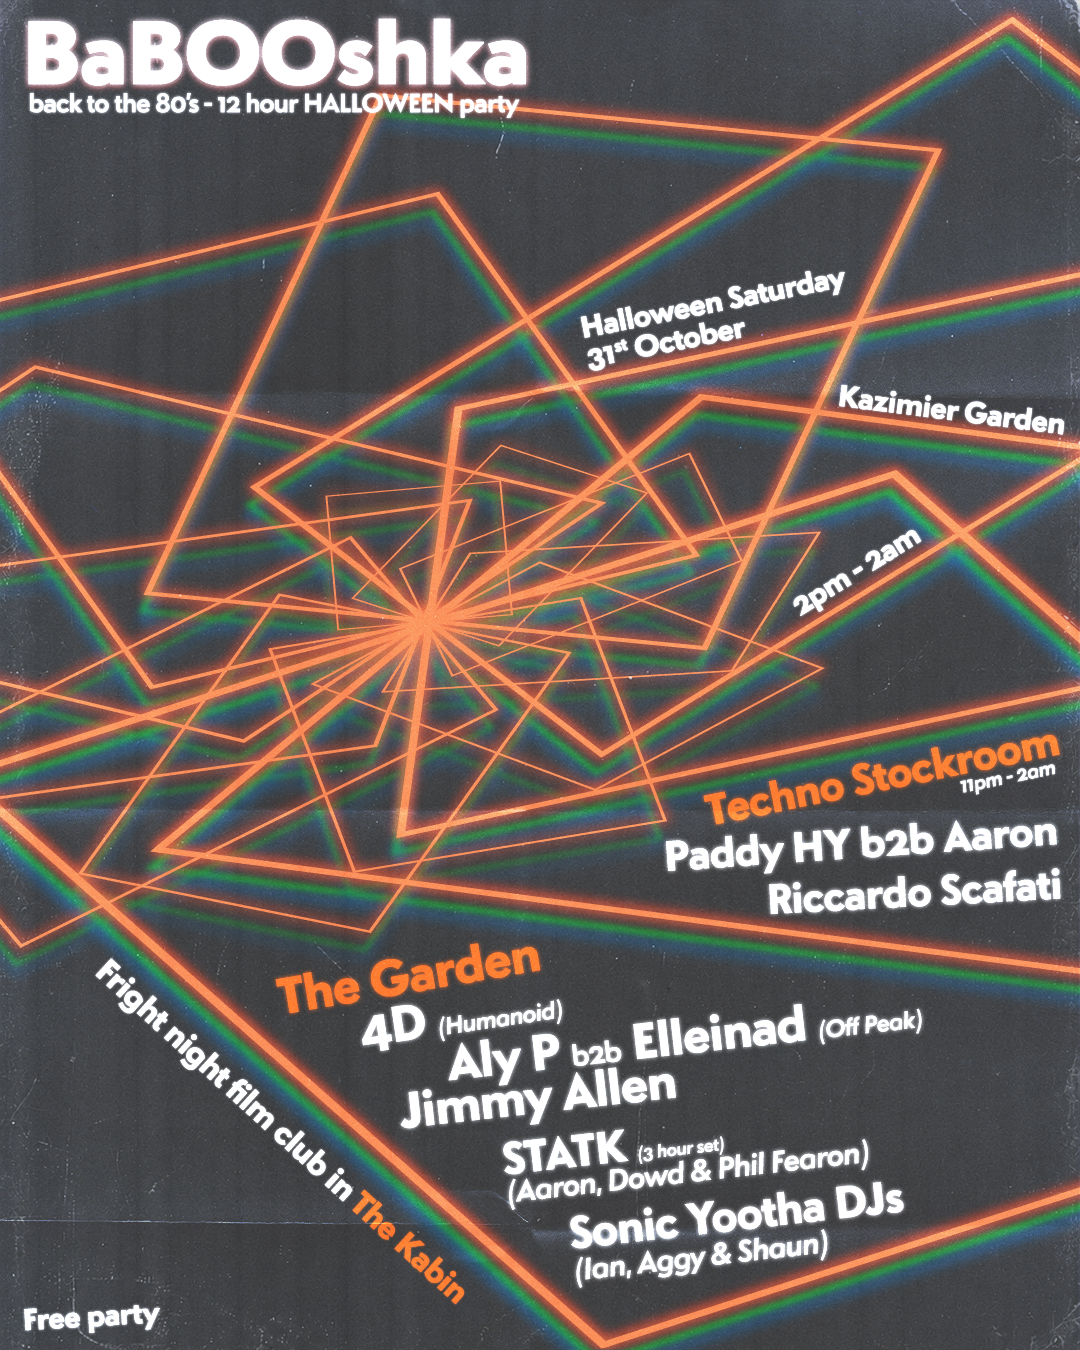 BaBOOshka
back to the 80's - 12 hour HALLOWEEN party
Halloween Saturday
31st October
Kazimier Garden
2pm - 2am
Techno Stockroom
11pm - 2am
Paddy HY b2b Aaron
Riccardo Scafati
The Garden
4D (Humanoid)
Aly P b2b Elleinad (Off Peak)
Jimmy Allen
STATK (3 hour set)
(Aaron, Dowd & Phil Fearon)
Sonic Yootha DJs
(Ian, Aggy & Shaun)
Fright night film club in The Kabin
Free party